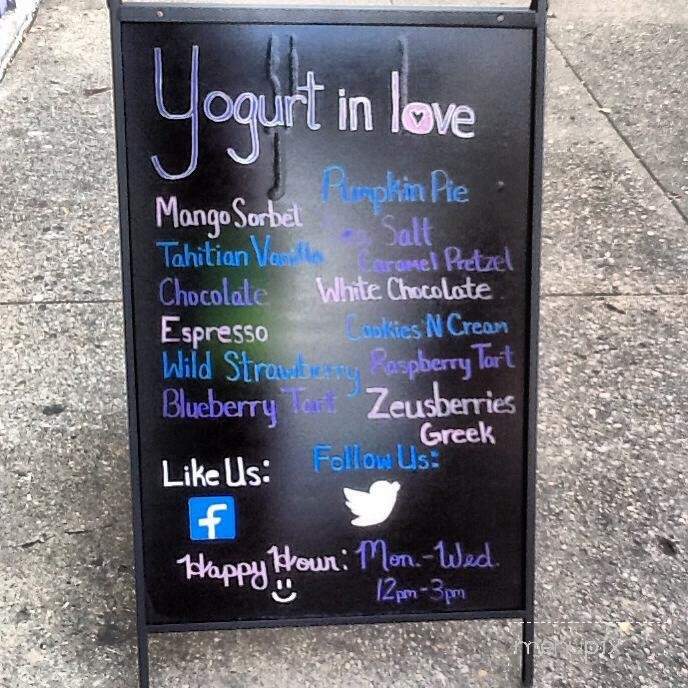 Yogurt in love
Mango Sorbet
Tahitian Vanilla
Chocolate
Espresso
Wild Strawberry
Blueberry Tart
Pumpkin Pie
Sea Salt
Caramel Pretzel
White Chocolate
Cookies N Cream
Raspberry Tart
Zeusberries
Greek
Like Us:
f
Follow Us:
Happy Hour: Mon.-Wed.
12pm-3pm
menupix